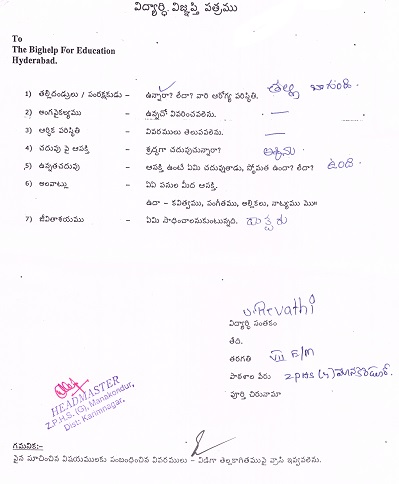 విద్యార్ధి విజ్ఞప్తి పత్రము
To
The Bighelp For Education
Hyderabad.
1) తల్లిదండ్రులు / సంరక్షకుడు – ఉన్నారా? లేదా? వారి ఆరోగ్య పరిస్థితి. తల్లి బాగుంది.
2) అంగవైకల్యము – ఉన్నచో వివరించవలెను. —
3) ఆర్ధిక పరిస్థితి – వివరములు తెలుపవలెను. —
4) చదువు పై ఆసక్తి – శ్రద్ధగా చదువుచున్నారా?
5) ఉన్నతచదువు – ఆసక్తి ఉంటే ఏమి చదువుతాడు, స్తోమత ఉందా? లేదా? ఉంది.
6) అలవాట్లు – ఏఏ పనుల మీద ఆసక్తి.
ఉదా – కవిత్వము, సంగీతము, ఆర్టికలు, నాట్యము మొ॥
7) జీవితాశయము – ఏమి సాధించాలనుకుంటున్నది. డాక్టరు
U. Revathi
విద్యార్ధి సంతకం
తేది.
తరగతి VII E/M
పాఠశాల పేరు Z.P.HS (G) మానకొండూర్.
పూర్తి చిరునామా
HEADMASTER
Z.P.H.S. (G), Manakondur,
Dist: Karimnagar.
గమనిక:-
పైన సూచించిన విషయములకు సంబంధించిన వివరములు – విడిగా తెల్లకాగితముపై వ్రాసి ఇవ్వవలెను.